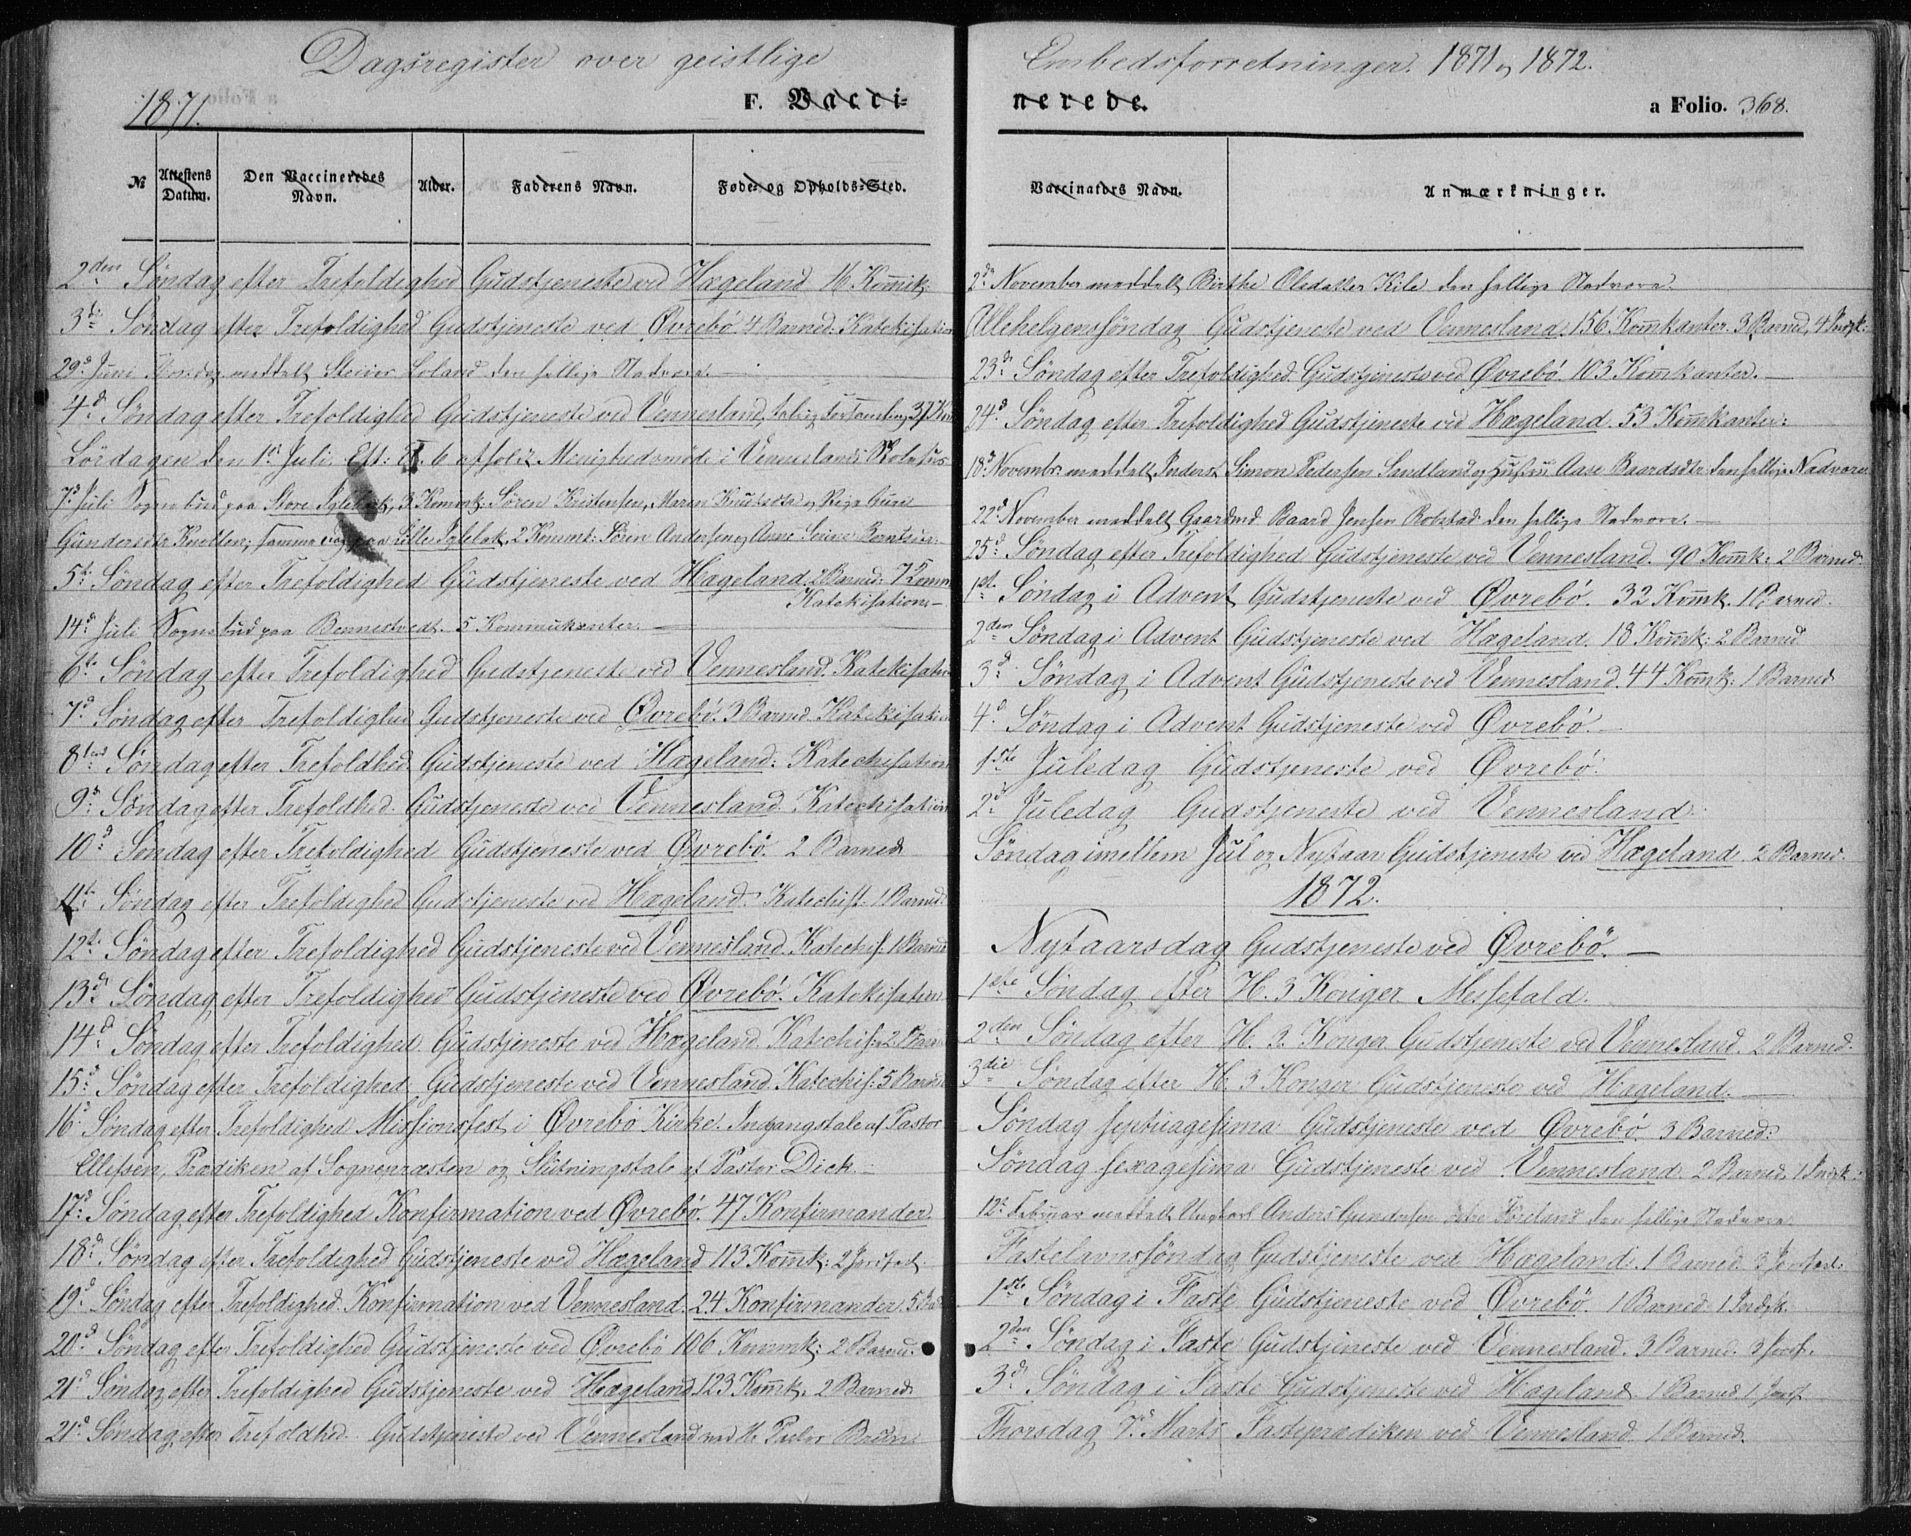 Dagsregister over geistlige
1871.
F. Vacci-
№
Attestens Datum.
Den Vaccineredes Navn.
Alder.
Faderens Navn.
Føde- og Opholds-Sted.
2den Søndag efter Trefoldighed Gudstjeneste ved Hægeland 16 Komik:
3die Søndag efter Trefoldighed Gudstjeneste ved Øvrebö 4 Barned. Katekisation
29d Juni meddelt Loland den hellige Nadvere.
4d Søndag efter Trefoldighed Gudstjeneste ved Vennesland, 37 Kom
Lördagen den 1st Juli Eft: Kl. 6 afholdt Menighedsmöde i Vennesland Skolehus
7d Juli Sognebud paa Store Iglebæk, 3 Kommk. Sören Kristensen, Maren Knudsdtr og Pige Guri
Gundersdtr Knollen; samme Dag paa Lille Iglebæk, 2 Kommk: Sören Andersen og Anne Serine Berntsdtr.
5t Søndag efter Trefoldighed Gudstjeneste ved Hægeland 2 Barned: 7 Komm
Katekisation
14d Juli Sognebud paa Bennestvedt. 5 Kommukanter.
6te Søndag efter Trefoldighed Gudstjeneste ved Vennesland. Katekisation
7d Søndag efter Trefoldighed Gudstjeneste ved Øvrebö. 3 Barned. Katekisation
8d Søndag efter Trefoldhed Gudstjeneste ved Hægeland: Katechisation
9d Søndag efter Trefoldhed. Gudstjeneste ved Vennesland. Katechisation
10d Søndag efter Trefoldighed Gudstjeneste ved Øvrebö. 2 Barned
11te Søndag efter Trefoldighed Gudstjeneste ved Hægeland. Katechis. 1 Barned.
12te Søndag efter Trefoldighed Gudstjeneste ved Vennesland. Katechis. 1 Barned
13d Søndag efter Trefoldighed Gudstjeneste ved Øvrebö. Katekisation
14d Søndag efter Trefoldighed Gudstjeneste ved Hægeland. Katechis: 2 Barn
15d Søndag efter Trefoldighed Gudstjeneste ved Vennesland. Katechis: 5 Barned
16d Søndag efter Trefoldighed Missionsfest i Øvrebö Kirke. Indgangstale af Pastor
Ellefsen, Prædiken af Sognepræsten og Slutningstale af Pastor Dick.
17d Søndag efter Trefoldighed Konfirmation ved Øvrebö. 47 Konfirmander.
18d Søndag efter Trefoldighed Gudstjeneste ved Hægeland 113 Komk: 2
19d Søndag efter Trefoldighed. Konfirmation ved Vennesland. 24 Konfirmander 5 Bar
20d Søndag efter Trefoldighed Gudstjeneste ved Øvrebö 106 Kommk: 2 Barned.
21d Søndag efter Trefoldighed Gudstjeneste ved Hægeland 123 Komk. 2 Barned.
21d Søndag efter Trefoldhed. Gudstjeneste ved Vennesland ved Hr Pastor
Embedsforretninger. 1871 og 1872.
nerede.
a Folio. 368.
Vaccinators Navn.
Anmærkninger.
2d November meddelt Birthe Olsdatter Kile den hellige Nadvere.
Allehelgenssöndag Gudstjeneste ved Vennesland. 156 Komkanter. 3 Barned, 4 Indgk:
23d Søndag efter Trefoldighed. Gudstjeneste ved Øvrebö. 103 Komkanter.
24d Søndag efter Trefoldighed Gudstjeneste ved Hægeland. 53 Komkanter:
18d Novembr meddelt Inderst Simon Pedersen Sandland og Hustru Aase Baardsdtr den hellige Nadvere
22d November meddelt Gaardmd Baard Jensen Robstad den hellige Nadvere.
25d Søndag efter Trefoldighed Gudstjeneste ved Vennesland. 90 Komk: 2 Barned.
1st Søndag i Advent Gudstjeneste ved Øvrebö. 32 Komk. 1 Barned.
2den Søndag i Advent Gudstjeneste ved Hægeland. 18 Komk: 2 Barned
3d Søndag i Advent Gudstjeneste ved Vennesland. 44 Komk: 1 Barned
4d Søndag i Advent Gudstjeneste ved Øvrebö.
1ste Juledag Gudstjeneste ved Øvrebö.
2d Juledag Gudstjeneste ved Vennesland.
Søndag imellem Jul og Nytaar Gudstjeneste ved Hægeland. 2 Barned.
1872.
Nytaarsdag Gudstjeneste ved Øvrebö.
1ste Søndag efter H. 3 Konger Messefald.
2den Søndag efter H. 3. Konger Gudstjeneste ved Vennesland. 2 Barned.
3die Søndag efter H. 3 Konger Gudstjeneste ved Hægeland.
Søndag septuagesima Gudstjeneste ved Øvrebö 3 Barned:
Søndag sexagesima Gudstjeneste ved Vennesland 2 Barned, 1 Indgk:
12t Februar meddelt Ungkarl Anders Gundersen Föreland den hellige Nadvere.
Fastelavnssöndag Gudstjeneste ved Hægeland. 1 Barned. 3
1ste Søndag i Faste Gudstjeneste ved Øvrebö. 1 Barned 1 Indgk.
2den Søndag i Faste Gudstjeneste ved Vennesland. 3 Barned.
3d Søndag i Faste Gudstjeneste ved Hægeland. 1 Barned 1
Thorsdag 7d Marts Fasteprædiken ved Vennesland 1 Barned.